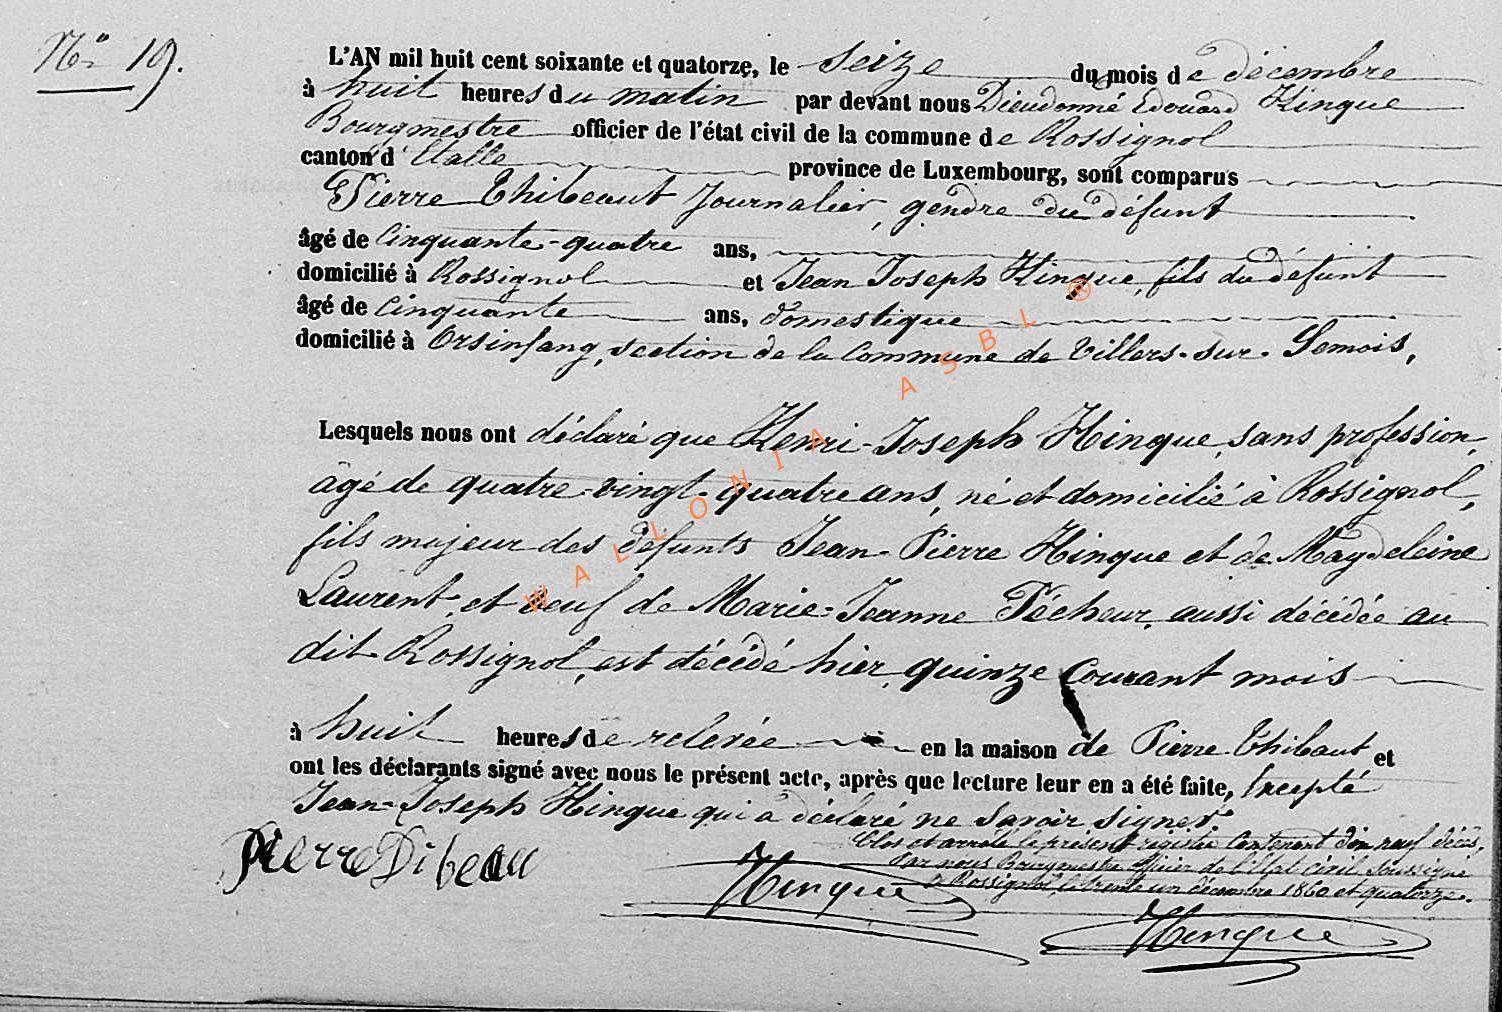 No 19.
L'AN mil huit cent soixante et quatorze, le seize du mois de décembre
à huit heures du matin par devant nous Dieudonné Edouard Hinque
Bourgmestre officier de l'état civil de la commune de Rossignol
canton d'Etalle province de Luxembourg, sont comparus
Pierre Thibeaut Journalier, gendre du défunt
âgé de Cinquante-quatre ans,
domicilié à Rossignol et Jean Joseph Hinque, fils du défunt
âgé de Cinquante ans, domestique
domicilié à Orsinfang, section de la Commune de Villers-sur-Semois,
Lesquels nous ont déclaré que Henri-Joseph Hinque, sans profession,
âgé de quatre-vingt-quatre ans, né et domicilié à Rossignol,
fils majeur des défunts Jean-Pierre Hinque et de Magdeleine
Laurent, et veuf de Marie-Jeanne Pécheur, aussi décédée au
dit Rossignol, est décédé hier, quinze courant mois
à huit heures de relevée en la maison de Pierre Thibaut et
ont les déclarants signé avec nous le présent acte, après que lecture leur en a été faite, Excepté
Jean-Joseph Hinque qui a déclaré ne savoir signer
Clos et arrêté le présent registre Contenant dix neuf décès,
Par nous Bourgmestre Officier de l'Etat Civil soussigné
à Rossignol, le trente un décembre 1860 et quatorze.
Pierre Dibeau
Hinque
Hinque
WALLONIA ASBL ®